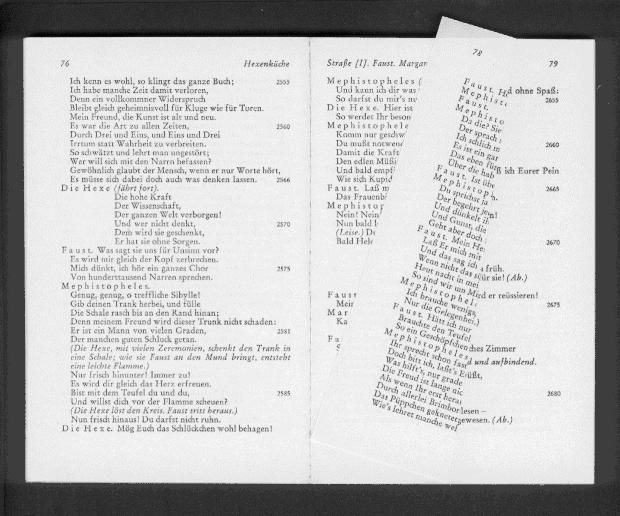 76 Hexenküche
Ich kenn es wohl, so klingt das ganze Buch; 2555
Ich habe manche Zeit damit verloren,
Denn ein vollkommner Widerspruch
Bleibt gleich geheimnisvoll für Kluge wie für Toren.
Mein Freund, die Kunst ist alt und neu.
Es war die Art zu allen Zeiten, 2560
Durch Drei und Eins, und Eins und Drei
Irrtum statt Wahrheit zu verbreiten.
So schwätzt und lehrt man ungestört;
Wer will sich mit den Narrn befassen?
Gewöhnlich glaubt der Mensch, wenn er nur Worte hört,
Es müsse sich dabei doch auch was denken lassen. 2566
Die Hexe (fährt fort).
Die hohe Kraft
Der Wissenschaft,
Der ganzen Welt verborgen!
Und wer nicht denkt, 2570
Dem wird sie geschenkt,
Er hat sie ohne Sorgen.
Faust. Was sagt sie uns für Unsinn vor?
Es wird mir gleich der Kopf zerbrechen.
Mich dünkt, ich hör ein ganzes Chor 2575
Von hunderttausend Narren sprechen.
Mephistopheles.
Genug, genug, o treffliche Sibylle!
Gib deinen Trank herbei, und fülle
Die Schale rasch bis an den Rand hinan;
Denn meinem Freund wird dieser Trunk nicht schaden:
Er ist ein Mann von vielen Graden, 2581
Der manchen guten Schluck getan.
(Die Hexe, mit vielen Zeremonien, schenkt den Trank in
eine Schale; wie sie Faust an den Mund bringt, entsteht
eine leichte Flamme.)
Nur frisch hinunter! Immer zu!
Es wird dir gleich das Herz erfreuen.
Bist mit dem Teufel du und du, 2585
Und willst dich vor der Flamme scheuen?
(Die Hexe löst den Kreis. Faust tritt heraus.)
Nun frisch hinaus! Du darfst nicht ruhn.
Die Hexe. Mög Euch das Schlückchen wohl behagen!
Straße [I]. Faust. Margar 79
Mephistopheles (
Und kann ich dir was d ohne Spaß:
So darfst du mir's nu 2655
Die Hexe. Hier ist
So werdet Ihr beson
Mephistophele
Komm nur geschw
Du mußt notwend 2660
Damit die Kraft
Den edlen Müßi
Und bald empf ß ich Eurer Pein
Wie sich Kupid
Faust. Laß m 2665
Das Frauenb
Mephistop
Nein! Nein
Nun bald
(Leise.) 2670
Bald Hele
früh.
für sie! (Ab.)
rd er reüssieren!
Faust 2675
Mar
Ka
Fa ches Zimmer
d und aufbindend.
2680
lesen –
gewesen. (Ab.)
78
Faust. H
Mephist
Faust.
Mephisto
Da die? Sie
Der sprach
Ich schlich m
Es ist ein gar
Das eben für
Über die hab
Faust. Ist übe
Mephistop
Du sprichst ja
Der begehrt jed
Und dünkelt ih
Und Gunst, die
Geht aber doch
Faust. Mein He
Laß Er mich mit
Und das sag ich
Wenn nicht das s
Heut nacht in mei
So sind wir um Mi
Mephistophel
Ich brauche wenigs
Nur die Gelegenhei
Faust. Hätt ich nur
Brauchte den Teufel
So ein Geschöpfchen
Mephistopheles.
Ihr sprecht schon fast
Doch bitt ich, laßt's E
Was hilft's, nur grade
Die Freud ist lange nic
Als wenn Ihr erst herau
Durch allerlei Brimbor
Das Püppchen geknetet
Wie's lehret manche wel